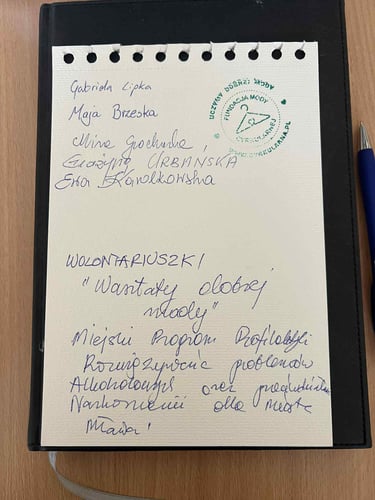 Gabriela Lipka
Maja Brzeska
UCZYMY DOBREJ MODY
FUNDACJA MODY
CYRKULARNEJ
WWW.CYRKULARNA.PL
Grażyna URBAŃSKA
Ewa Karolkowska
WOLONTARIUSZKI
"Warsztaty dobrej
mody"
Miejski Program Profilaktyki
Rozwiązywania problemów
Alkoholowych oraz przeciwdziałania
Narkomanii dla Miasta
Mława!